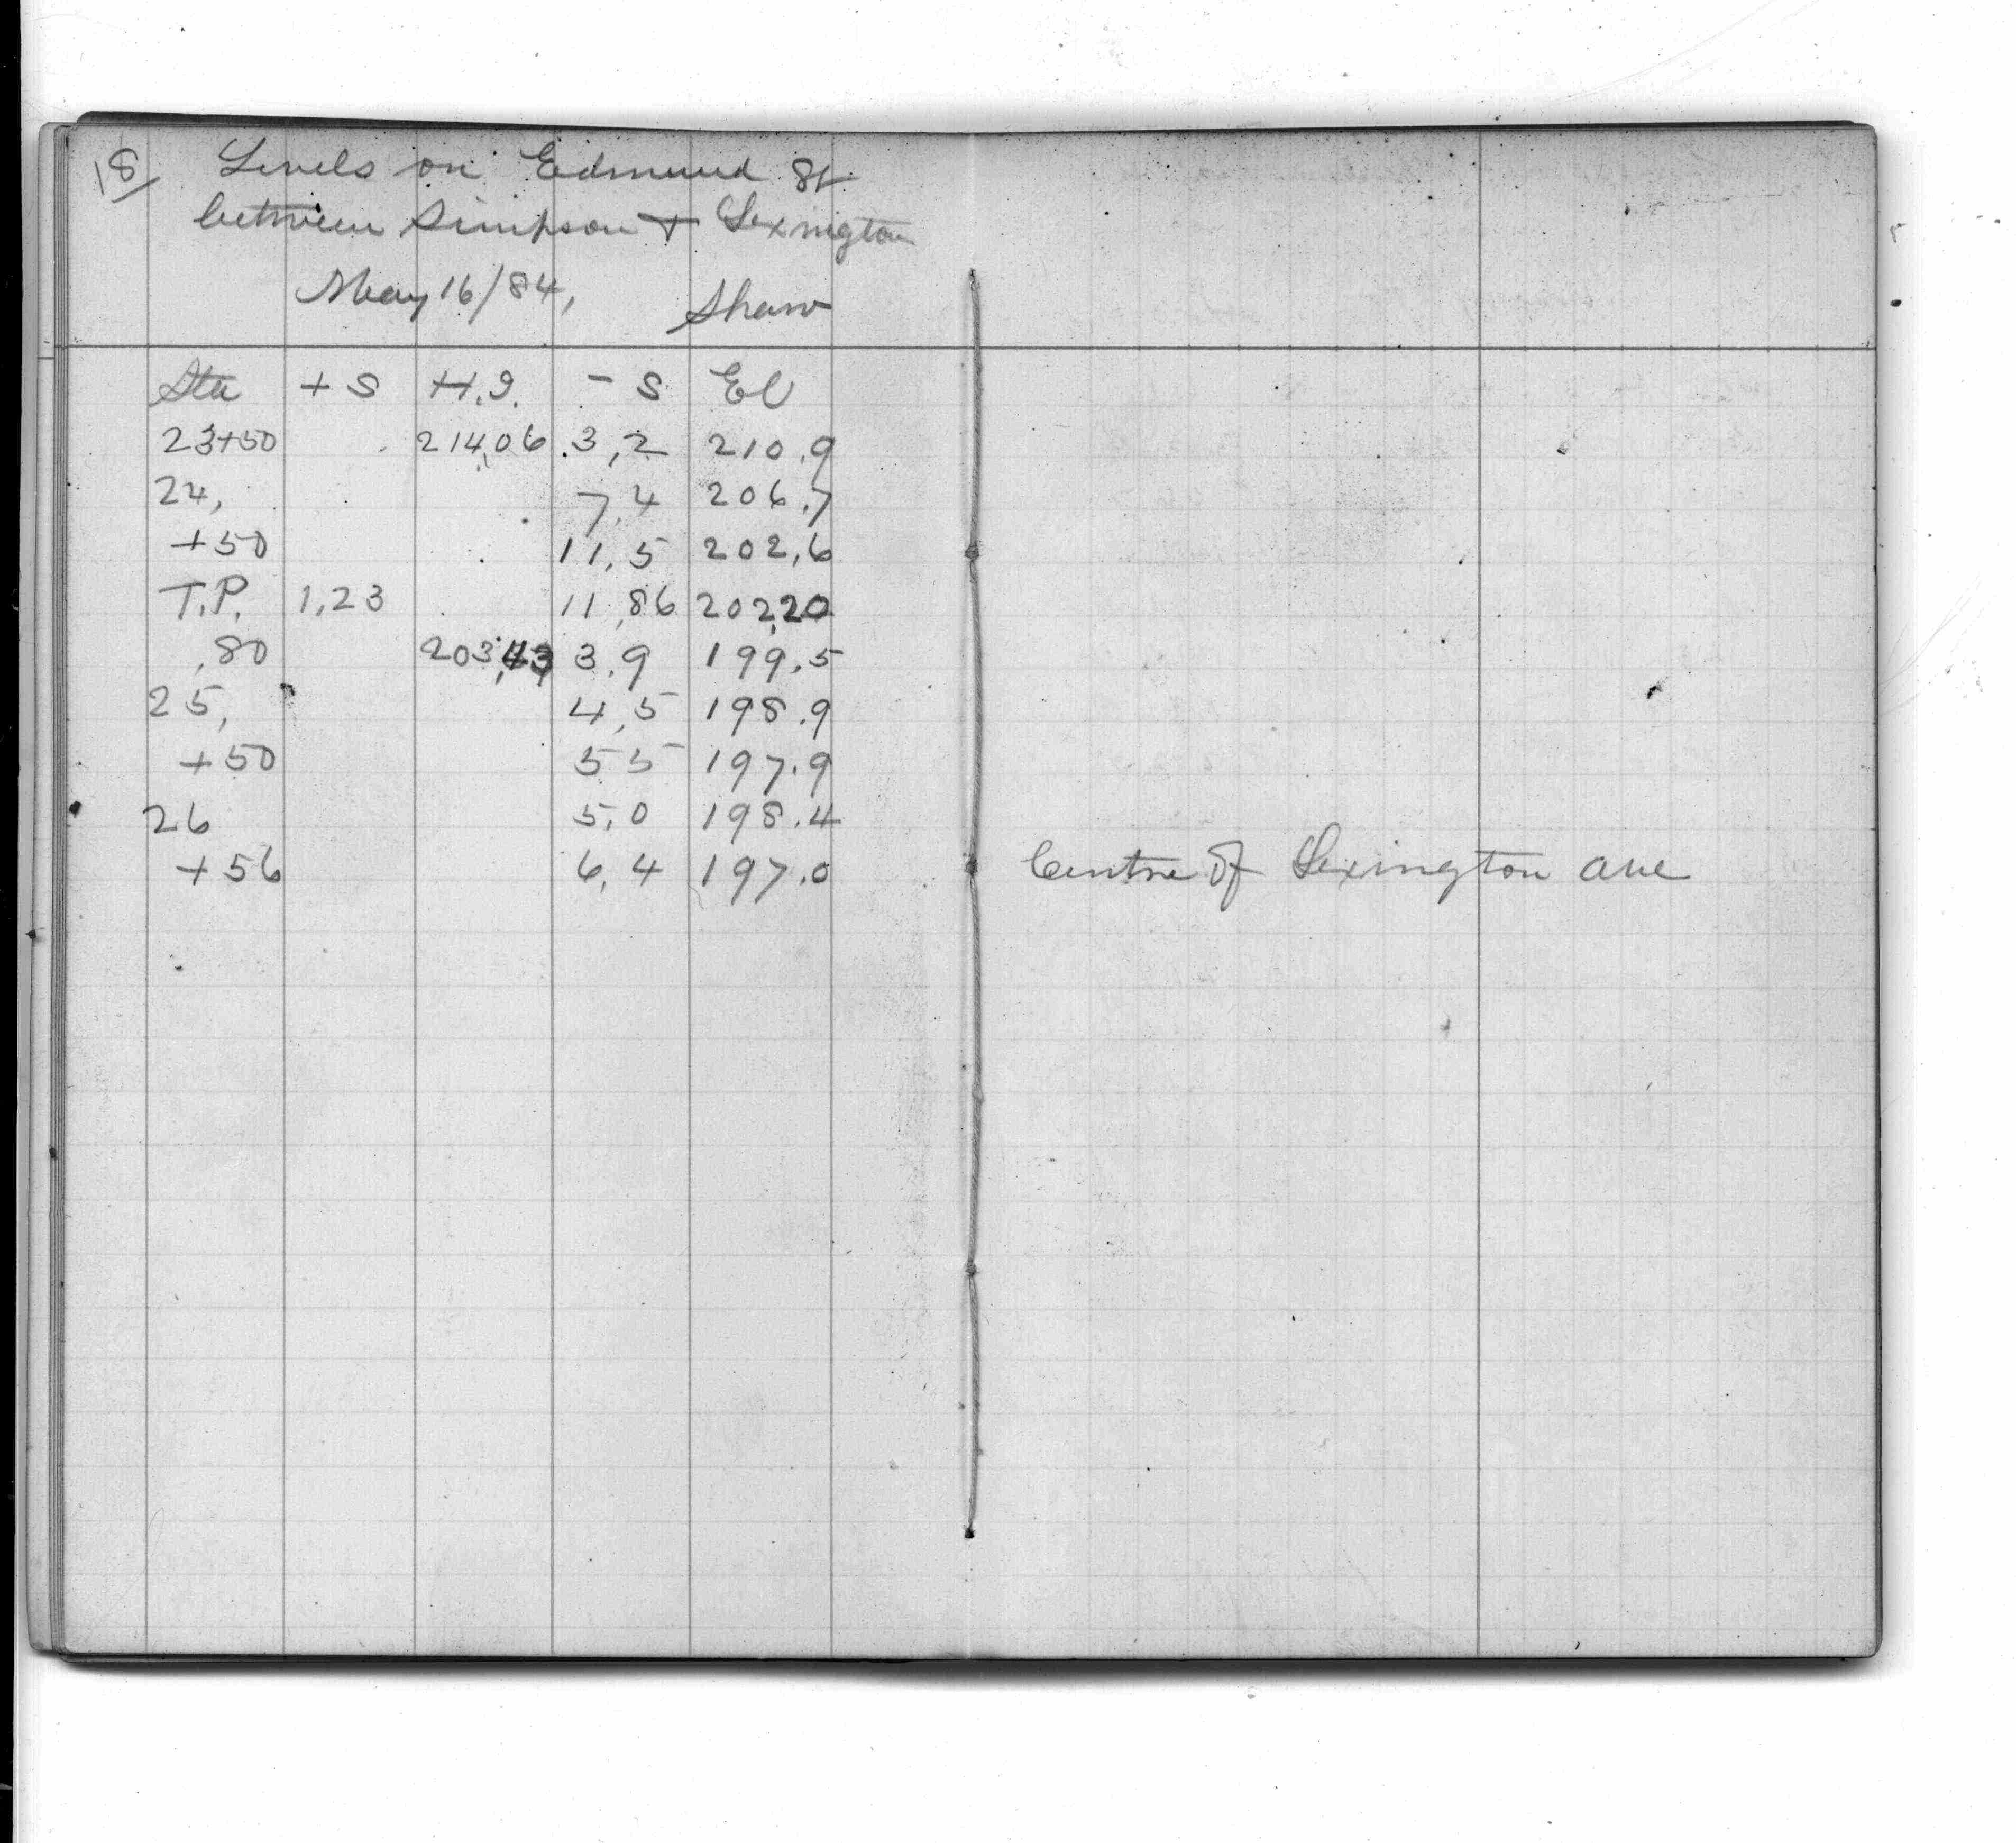 18/ Levels on Edmund St
between Simpson + Lexington
May 16/84, Shaw
Sta +S H.I. -S El
23+50 214,06 3,2 210.9
24, 7,4 206.7
+50 11,5 202,6
T.P. 1,23 11,86 202,20
,80 203,43 3.9 199.5
25, 4,5 198.9
+50 55 197.9
26 5,0 198.4
+56 6,4 197.0 Centre of Lexington ave